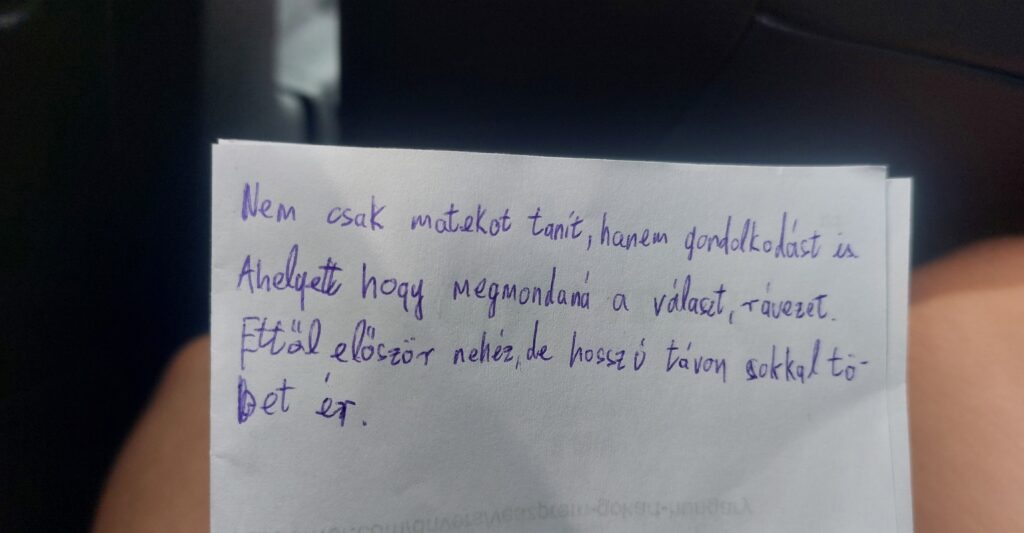 Nem csak matekot tanít, hanem gondolkodást is
Ahelyett hogy megmondaná a választ, rávezet.
Ettől először nehéz, de hosszú távon sokkal tö-
bet ér.